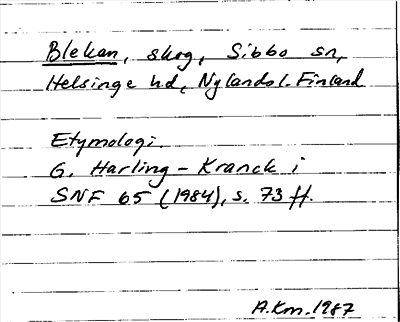 Blekan, skog, Sibbo sn,
Helsinge hd, Nylands l. Finland
Etymologi.
G. Harling-Kranck i
SNF 65 (1984), s. 73 ff.
A.Km.1987